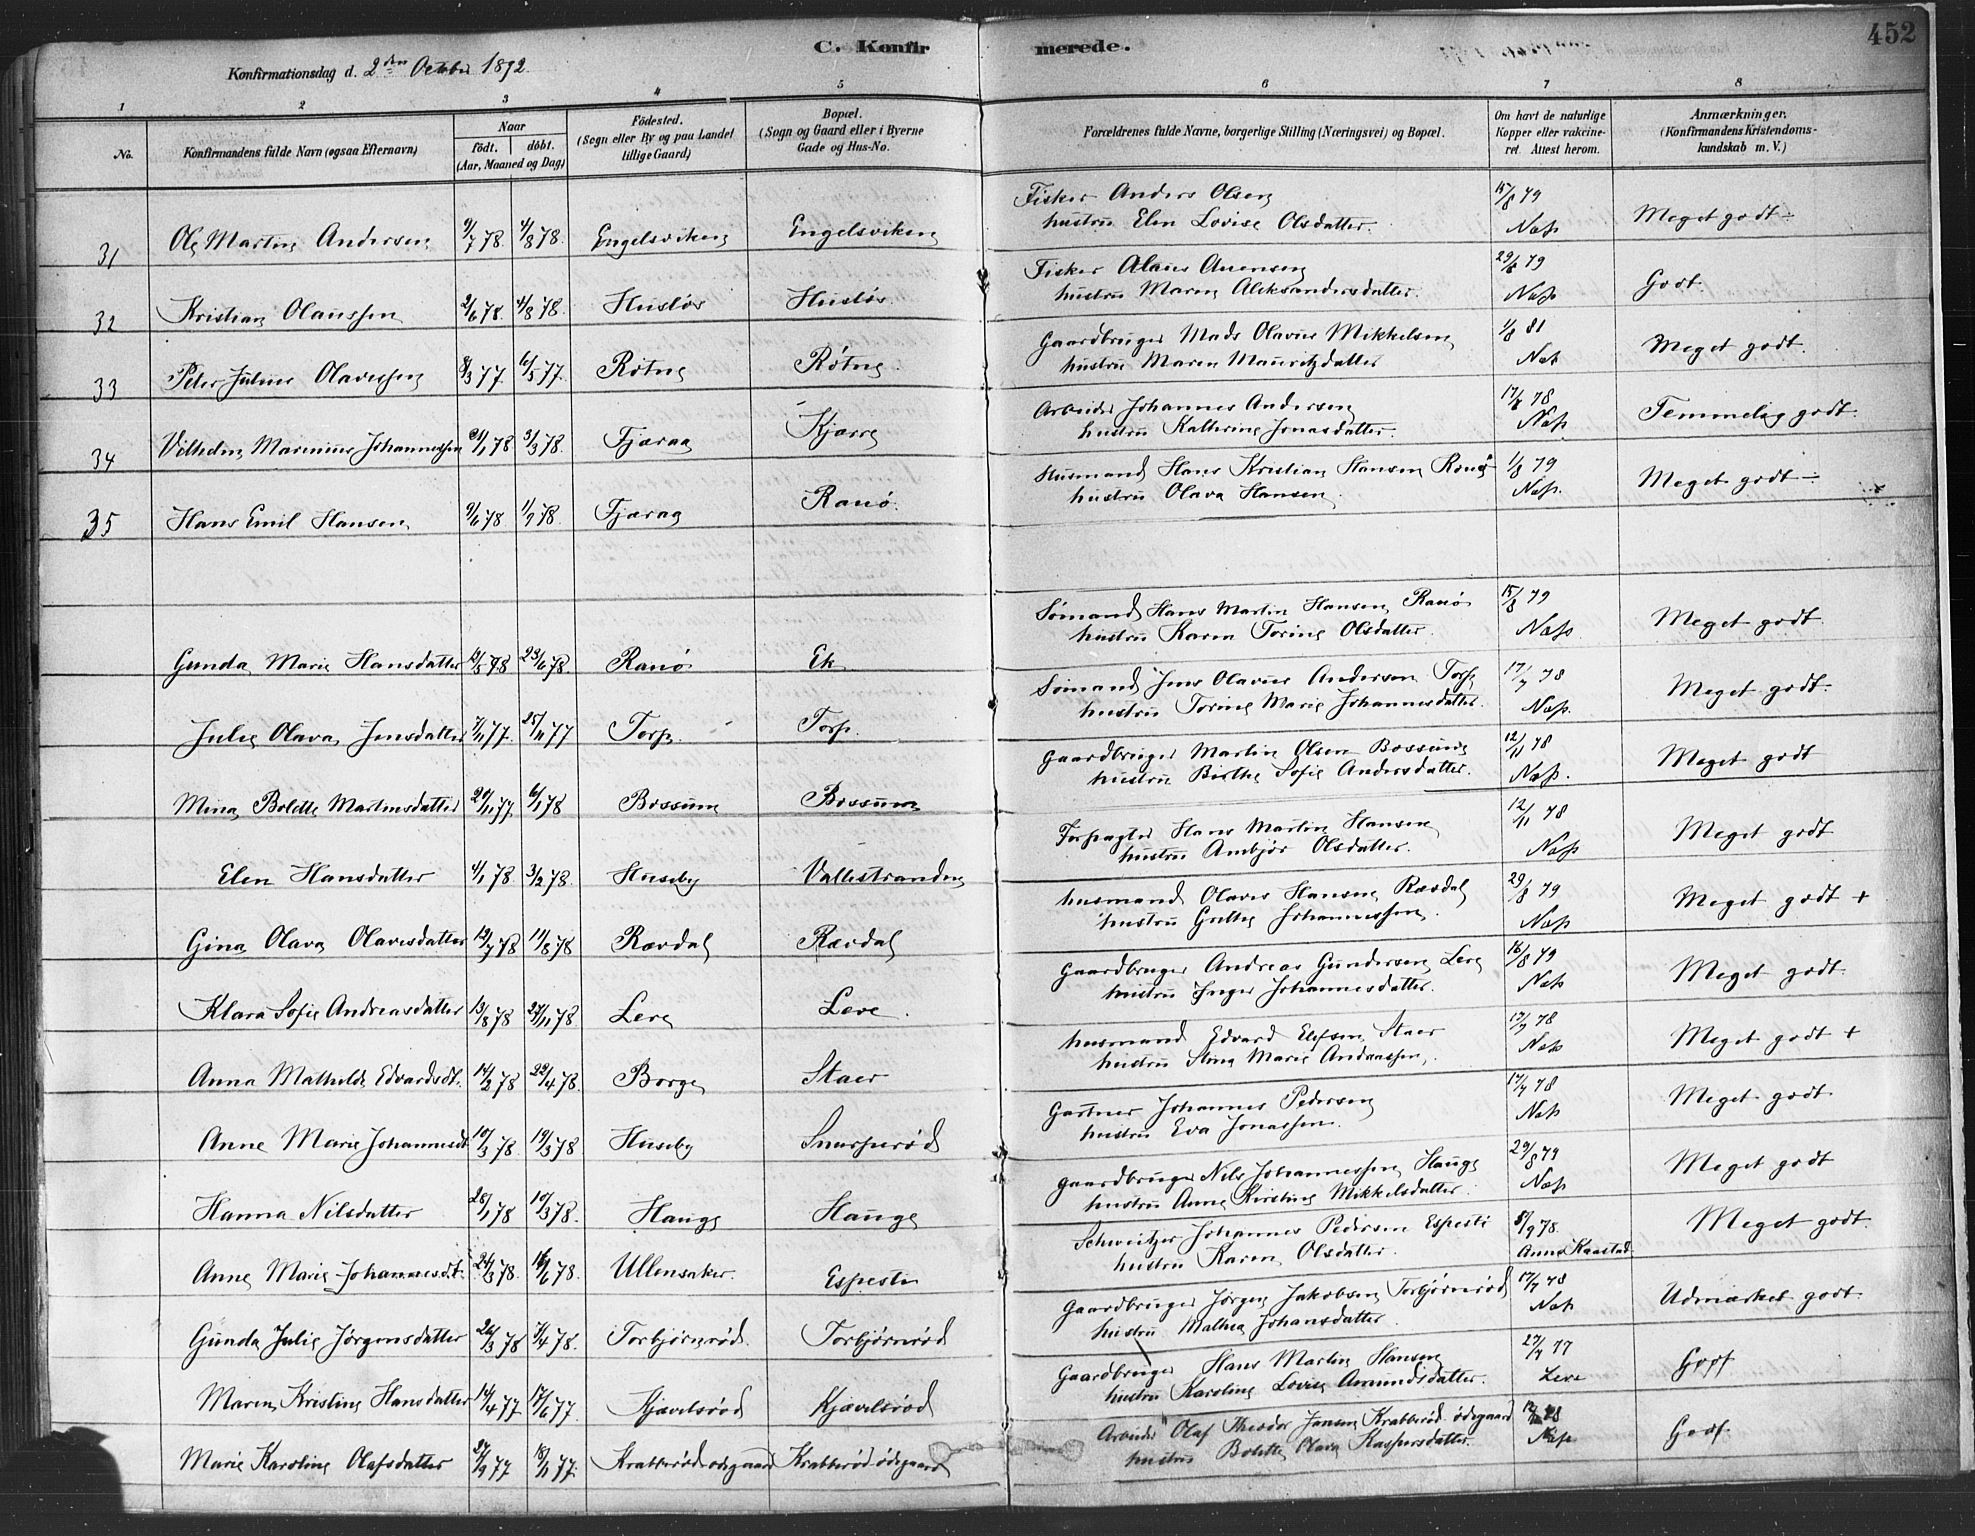 C. Konfirmerede.
452
Konfirmationsdag d. 2den October 1892
1 2 3 4 5 6 7 8
No.
Konfirmandens fulde Navn (ogsaa Efternavn)
Naar
født. døbt.
(Aar, Maaned og Dag)
Fødested.
(Sogn eller By og paa Landet
tillige Gaard)
Bopæl.
(Sogn og Gaard eller i Byerne
Gade og Hus-No.
Forældrenes fulde Navne, borgerlige Stilling (Næringsvei) og Bopæl.
Om havt de naturlige
Kopper eller vakcine-
ret. Attest herom.
Anmærkninger.
(Konfirmandens Kristendoms-
kundskab m. V.)
Fisker Anders Olsen 15/8 79
31 Ole Martin Andersen 9/7 78. 4/8 78. Engelsviken Engelsviken hustru Elen Lovise Olsdatter. Næss Meget godt
Fisker Olaus 29/8 79
32 Kristian Olaussen 2/6 78. 4/8 78. Husløs Husløs hustru Maren Aleksandersdatter. Næss Godt
Gaardbruger Mads Olavus Mikkelsen 1/8 81
33 Peter Julius Olavessen 8/3 77. 6/5 77. Rötne Rötne. hustru Maren Mauritzdatter Næss Meget godt.
Arbeider Johannes Andersen 17/7 78
34 Vilhelm Marinius Johannessen 31/1 78 31/3 78. Fjæraa Kjærre hustru Kathrine Jonasdatter. Næss Temmelig godt
Husmand Hans Kristian Hansen Ranø 1/8 79
35 Hans Emil Hansen 9/6 78 1/9 78. Fjæraa Ranø. hustru Olava Hansen. Næss. Meget godt
Sømand Hans Martin Hansen Ranø 15/8 79
Gunda Marie Hansdatter 12/5 78 23/6 78. Ranø Ek hustru Karen Torine Olsdatter. Næss. Meget godt
Sømand Jens Olavus Andersen Torp 17/7 78
Julie Olava Jensdatter 7/11 77. 25/11 77 Torp. Torp. hustru Torine Marie Johannesdatter. Næss. Meget godt.
Gaardbruger Martin Olsen Bossum 12/11 78
Mina Bolette Martinsdatter 20/11 77. 6/1 78 Bossum Bossum hustru Birthe Sofie Andersdatter. Næss. Meget godt
Forpagter Hans Martin Hansen 12/11 78
Elen Hansdatter 4/1 78. 3/2 78. Huseby Vallestranden hustru Ambjør Olsdatter. Næss Meget godt
husmand Olaves Hansen Rævdal 29/8 79
Gina Olava Olavesdatter 12/7 78 11/8 78 Rævdal Rævdal hustru Grethe Johannessen. Næss Meget godt +
Gaardbruger Andreas Gundersen Lere 16/8 79
Klara Sofie Andreasdatter 13/8 78 24/11 78. Lere Lere. hustru Inger Johannesdatter. Næss Meget godt.
husmand Edvard Elefsen Staer 17/7 78
Anna Mathilde Edvardsdt. 14/2 78 22/4 78. Borge Staer hustru Stina Marie Andreassen. Næss Meget godt +
Gartner Johannes Pedersen 17/7 78
Anne Marie Johannesdt. 10/3 78. 19/3 78 Huseby Snurperød hustru Eva Jonassen. Næss Meget godt
Gaardbruger Nils Johannessen Hauge 29/8 79
Hanna Nilsdatter 28/1 78 10/3 78. Hauge Hauge hustru Anne Kirstine Mikkelsdatter. Næss Meget godt
Schweitzer Johannes Pedersen Espesti 8/9 78.
Anne Marie Johannesdt. 24/3 78. 16/6 78. Ullensaker. Espesti hustru Karen Olsdatter. Anne Kaastad Meget godt.
Gaardbruger Jørgen Jakobsen Torbjørnrød 17/7 78
Gunda Julie Jørgensdatter 26/3 78 7/4 78. Torbjørnrød. Torbjørnrød hustru Mathea Johansdatter. Næss Udmærket godt.
Gaardbruger Hans Martin Hansen 27/7 77
Maren Kristine Hansdatter 14/4 77 17/6 77. Kjævelsrød Kjævelsrød hustru Karoline Lovise Amundsdatter. Lere Godt
Arbeider Olaf Theodor Jansen Krabberød ødegaard
Marie Karoline Olafsdatter 24/9 77 18/11 77. Krabberød ødegaard Krabberød ødegaard hustru Bolette Olava Kaspersdatter. Næss Godt